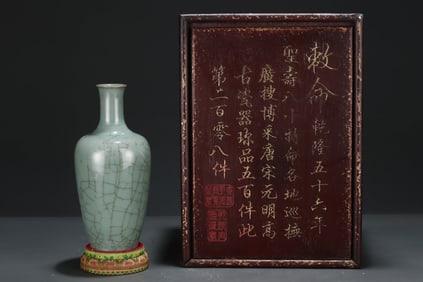 敕命乾隆五十六年
聖壽八十特命各地巡撫
廣搜博采唐宋元明高
古瓷器珍品五百件此
第二百零八件